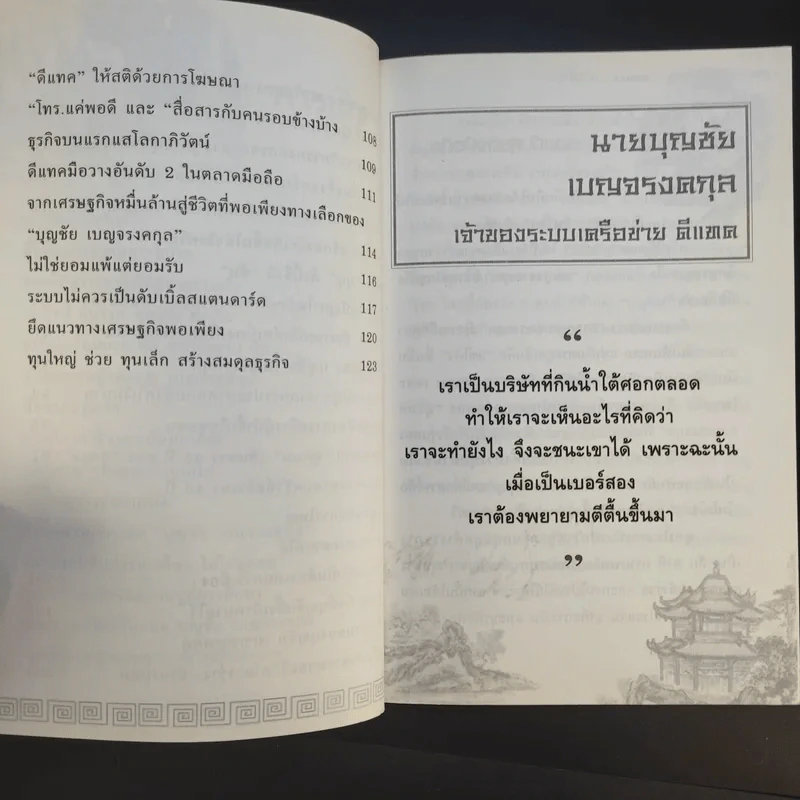 “ดีแทค” ให้สติด้วยการโฆษณา
“โทร.แค่พอดี และ “สื่อสารกับคนรอบข้างบ้าง 108
ธุรกิจบนแรกแสโลกาภิวัตน์ 109
ดีแทคมือวางอันดับ 2 ในตลาดมือถือ 111
จากเศรษฐกิจหมื่นล้านสู่ชีวิตที่พอเพียงทางเลือกของ
“บุญชัย เบญจรงคกุล” 114
ไม่ใช่ยอมแพ้แต่ยอมรับ 116
ระบบไม่ควรเป็นดับเบิ้ลสแตนดาร์ด 117
ยึดแนวทางเศรษฐกิจพอเพียง 120
ทุนใหญ่ ช่วย ทุนเล็ก สร้างสมดุลธุรกิจ 123
นายบุญชัย
เบญจรงคกุล
เจ้าของระบบเครือข่าย ดีแทค
“
เราเป็นบริษัทที่กินน้ำใต้ศอกตลอด
ทำให้เราจะเห็นอะไรที่คิดว่า
เราจะทำยังไง จึงจะชนะเขาได้ เพราะฉะนั้น
เมื่อเป็นเบอร์สอง
เราต้องพยายามตีตื้นขึ้นมา
”